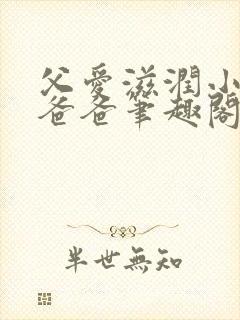 父愛滋潤小
爸爸筆趣閣
半世無知